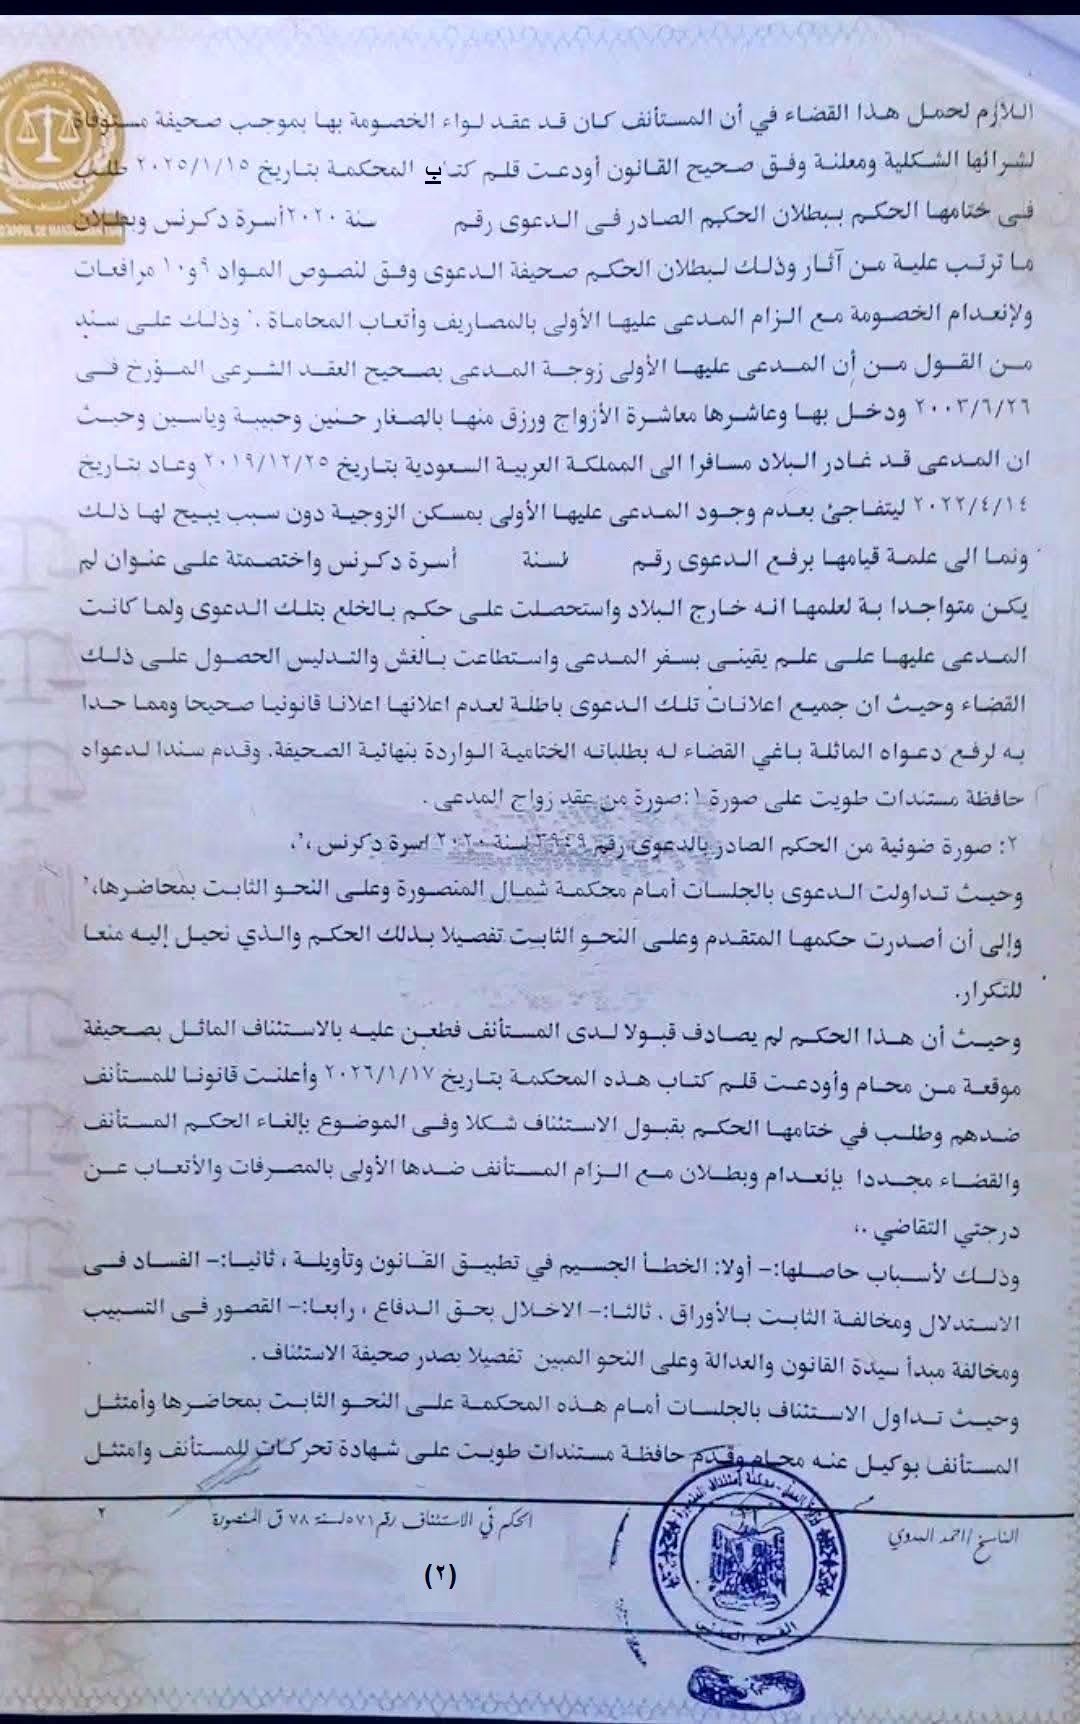 اللازم لحمل هذا القضاء في أن المستأنف كان قد عقد لواء الخصومة بها بموجب صحيفة مستوفاة
لشرائها الشكلية ومعلنة وفق صحيح القانون أودعت قلم كتاب المحكمة بتاريخ ٢٠٢٥/١/١٥ طلب
فى ختامها الحكم ببطلان الحكم الصادر فى الدعوى رقم سنة ٢٠٢٠ أسرة دكرنس وبطلان
ما ترتب علية من آثار وذلك لبطلان الحكم صحيفة الدعوى وفق لنصوص المواد ٩و١٠ مرافعات
ولإنعدام الخصومة مع الزام المدعى عليها الأولى بالمصاريف وأتعاب المحاماة .' وذلك على سند
من القول من أن المدعى عليها الأولى زوجة المدعى بصحيح العقد الشرعى المؤرخ فى
٢٠٠٣/٦/٢٦ ودخل بها وعاشرها معاشرة الأزواج ورزق منها بالصغار حنين وحبيبة وياسين وحيث
ان المدعى قد غادر البلاد مسافرا الى المملكة العربية السعودية بتاريخ ٢٠١٩/١٢/٢٥ وعاد بتاريخ
٢٠٢٢/٤/١٤ ليتفاجئ بعدم وجود المدعى عليها الأولى بمسكن الزوجية دون سبب يبيح لها ذلك
ونما الى علمة قيامها برفع الدعوى رقم لسنة أسرة دكرنس واختصمتة على عنوان لم
يكن متواجدا بة لعلمها انه خارج البلاد واستحصلت على حكم بالخلع بتلك الدعوى ولما كانت
المدعى عليها على علم يقينى بسفر المدعى واستطاعت بالغش والتدليس الحصول على ذلك
القضاء وحيث ان جميع اعلانات تلك الدعوى باطلة لعدم اعلانها اعلانا قانونيا صحيحا ومما حدا
به لرفع دعواه الماثلة باغي القضاء له بطلباته الختامية الواردة بنهائية الصحيفة. وقدم سندا لدعواه
حافظة مستندات طويت على صورة ١:صورة من عقد زواج المدعى .
٢: صورة ضوئية من الحكم الصادر بالدعوى رقم ٣٩٤٩ لسنة ٢٠٢٠ اسرة دكرنس ،'،
وحيث تداولت الدعوى بالجلسات أمام محكمة شمال المنصورة وعلى النحو الثابت بمحاضرها،'
وإلى أن أصدرت حكمها المتقدم وعلى النحو الثابت تفصيلا بذلك الحكم والذي نحيل إليه منعا
للتكرار.
وحيث أن هذا الحكم لم يصادف قبولا لدى المستأنف فطعن عليه بالاستئناف الماثل بصحيفة
موقعة من محام وأودعت قلم كتاب هذه المحكمة بتاريخ ٢٠٢٦/١/١٧ وأعلنت قانونا للمستأنف
ضدهم وطلب في ختامها الحكم بقبول الاستئناف شكلا وفى الموضوع بإلغاء الحكم المستأنف
والقضاء مجددا بإنعدام وبطلان مع الزام المستأنف ضدها الأولى بالمصرفات والأتعاب عن
درجتي التقاضي .،
وذلك لأسباب حاصلها:- أولا: الخطأ الجسيم في تطبيق القانون وتأويلة ، ثانيا:- الفساد فى
الاستدلال ومخالفة الثابت بالأوراق . ثالثا:- الاخلال بحق الدفاع ، رابعا:- القصور فى التسبيب
ومخالفة مبدأ سيدة القانون والعدالة وعلى النحو المبين تفصيلا بصدر صحيفة الاستئناف .
وحيث تداول الاستئناف بالجلسات أمام هذه المحكمة على النحو الثابت بمحاضرها وأمتثل
المستأنف بوكيل عنه محام وقدم حافظة مستندات طويت على شهادة تحركات للمستأنف وامتثل
الناسخ /احمد البدوي
الحكم في الاستئناف رقم ٥٧١ لسنة ٧٨ ق المنصورة
٢
(٢)